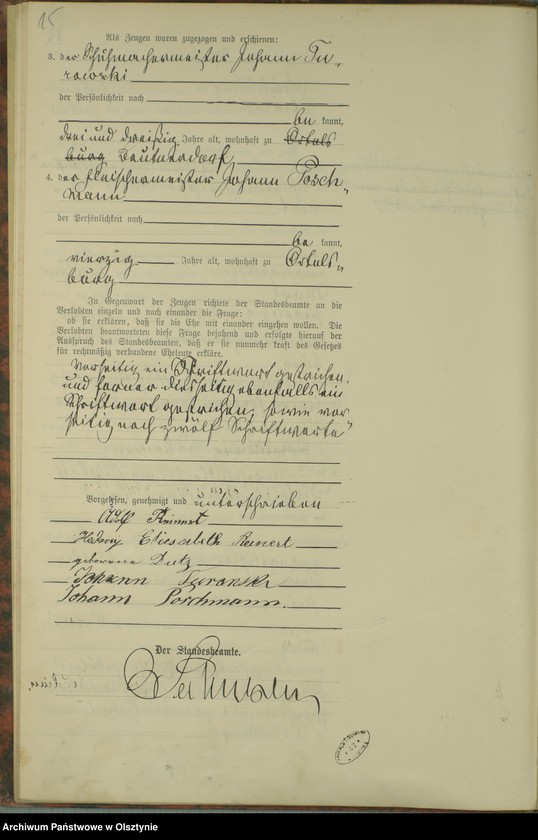 15
Als Zeugen waren zugezogen und erschienen:
3. der Schuhmachermeister Johann Tu-
rowski
der Persönlichkeit nach
be kannt,
drei und dreißig Jahre alt, wohnhaft zu Ortels
burg Beutnerdorf
4. der Fleischermeister Johann Posch-
mann
der Persönlichkeit nach
be kannt,
vierzig Jahre alt, wohnhaft zu Ortels-
burg
In Gegenwart der Zeugen richtete der Standesbeamte an die
Verlobten einzeln und nach einander die Frage:
ob sie erklären, daß sie die Ehe mit einander eingehen wollen. Die
Verlobten beantworteten diese Frage bejahend und erfolgte hierauf der
Ausspruch des Standesbeamten, daß er sie nunmehr kraft des Gesetzes
für rechtmäßig verbundene Eheleute erkläre.
Vorseitig ein Schriftwort gestrichen,
und ferner diesseitig ebenfalls ein
Schriftwort gestrichen, sowie vor
seitig noch zwölf Schriftworte
Vorgelesen, genehmigt und unterschrieben
Adolf Reinert
Hedwig Elisabeth Reinert
geborene Dutz
Johann Turowski
Johann Poschmann.
Der Standesbeamte.
Archiwum Państwowe w Olsztynie